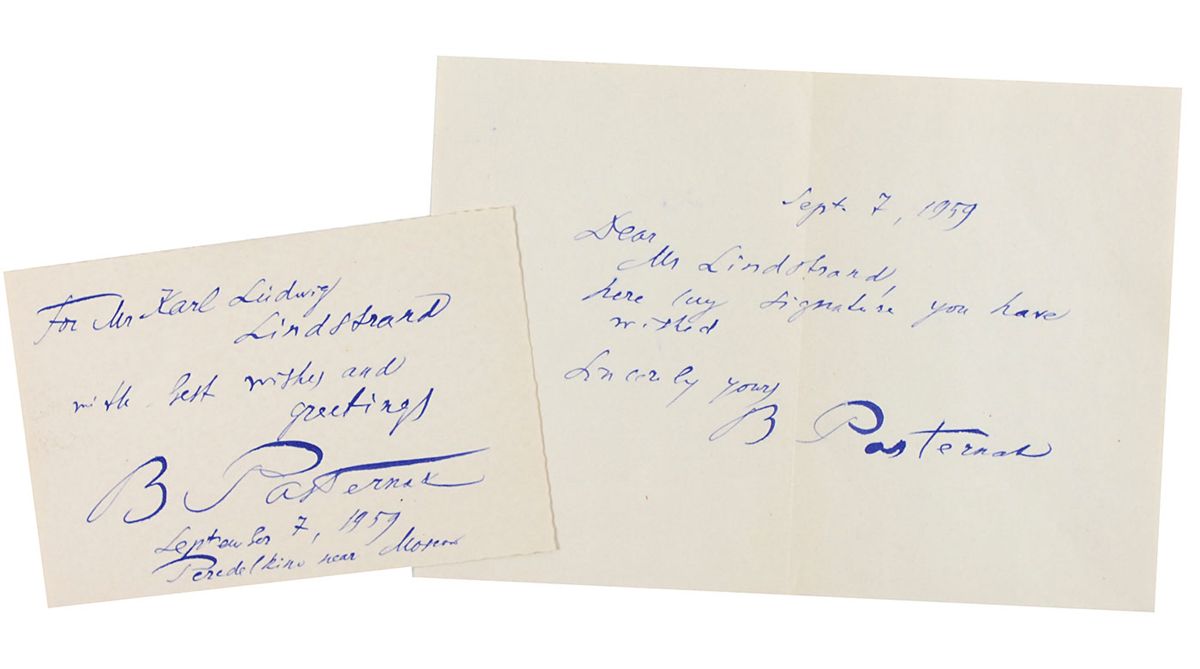 For Mr Karl Ludwig
Lindstrand
with best wishes and
greetings
B Pasternak
September 7, 1959
Peredelkino near Moscow
Sept. 7, 1959
Dear
Mr Lindstrand,
here my signature you have
wished
Sincerely yours
B Pasternak